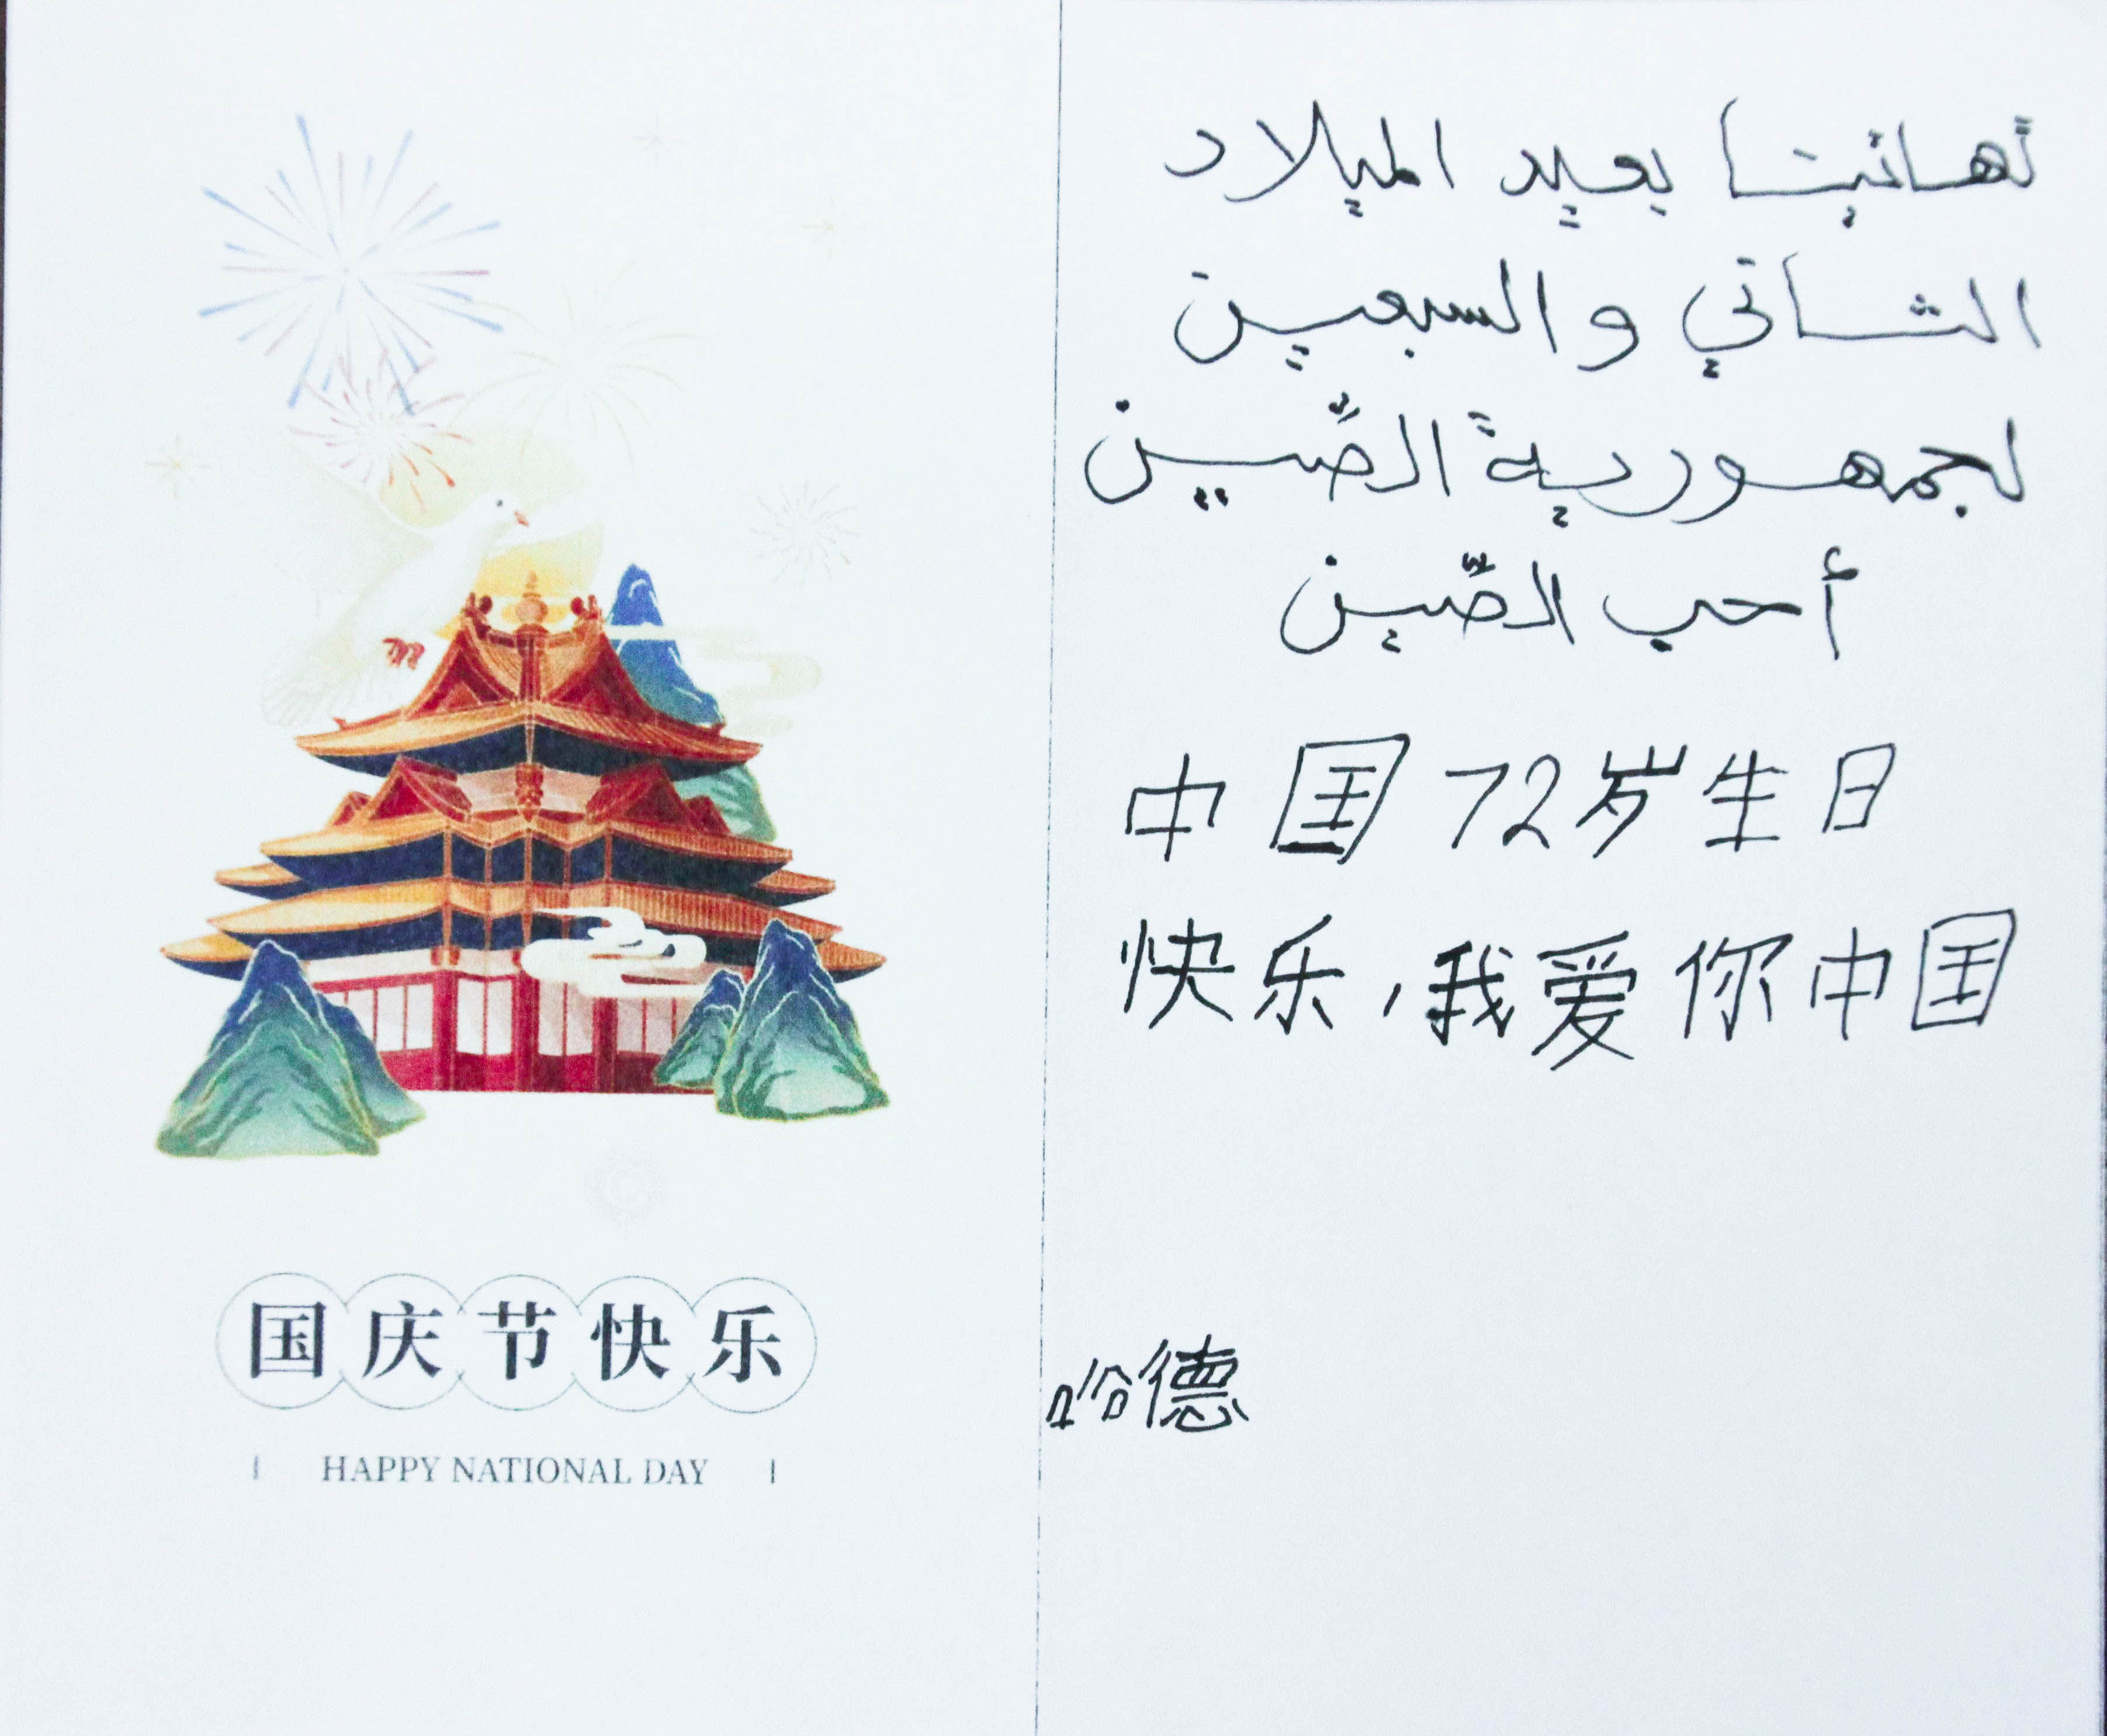 国庆节快乐
HAPPY NATIONAL DAY
تهانينا بعيد الميلاد
الثاني والسبعين
لجمهورية الصّين
أحب الصّين
中国72岁生日
快乐,我爱你中国
哈德